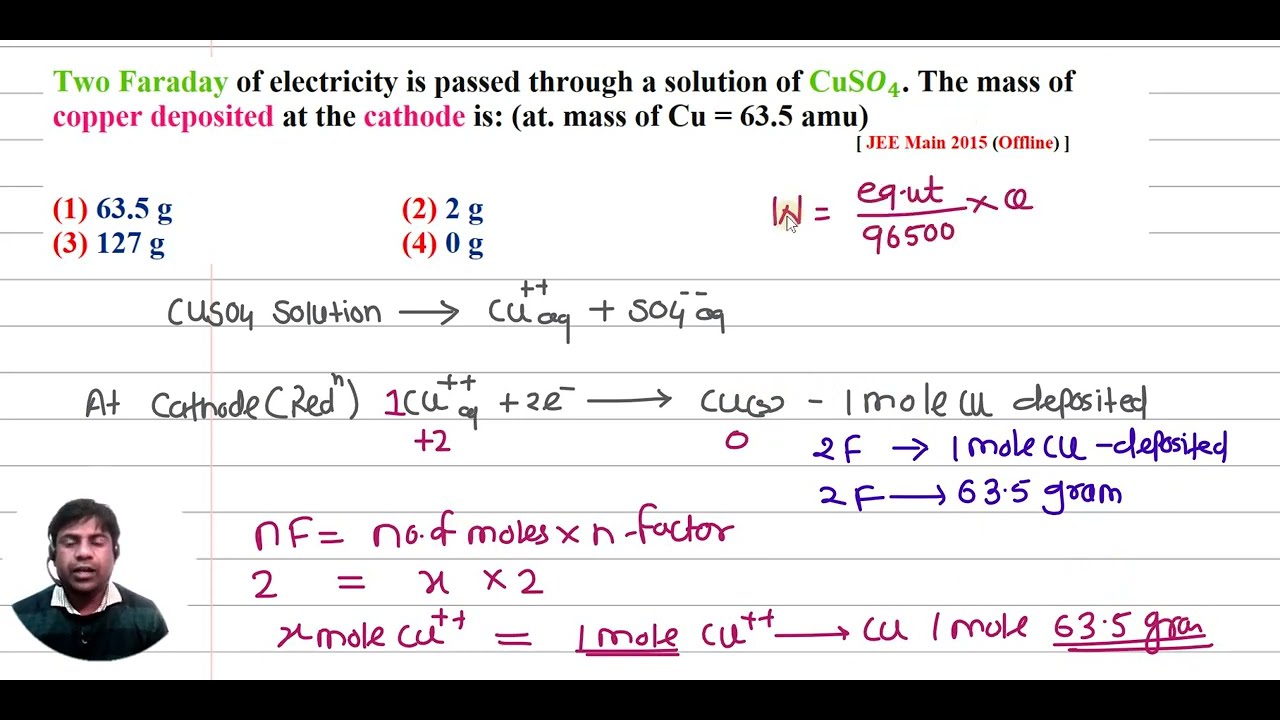 Two Faraday of electricity is passed through a solution of CuSO₄. The mass of
copper deposited at the cathode is: (at. mass of Cu = 63.5 amu)
[ JEE Main 2015 (Offline) ]
(1) 63.5 g (2) 2 g
(3) 127 g (4) 0 g
W = eq.wt / 96500 × Q
CuSO4 Solution → Cu⁺⁺aq + SO4⁻⁻aq
At Cathode (Redⁿ) 1Cu⁺⁺aq + 2e⁻ → Cu(s) - 1 mole Cu deposited
+2 0
2F → 1 mole Cu - deposited
2F → 63.5 gram
nF = no. of moles × n-factor
2 = x × 2
x mole Cu⁺⁺ = 1 mole Cu⁺⁺ → Cu 1 mole 63.5 gram